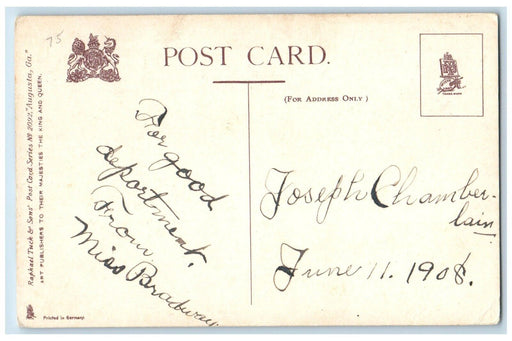 75
POST CARD.
(FOR ADDRESS ONLY)
Raphael Tuck & Sons' Post Card Series No 2092, "Augusta, Ga."
ART PUBLISHERS TO THEIR MAJESTIES THE KING AND QUEEN.
For good
department.
From
Miss Bradway
Joseph Chamber-
lain
June 11. 1908.
Printed in Germany